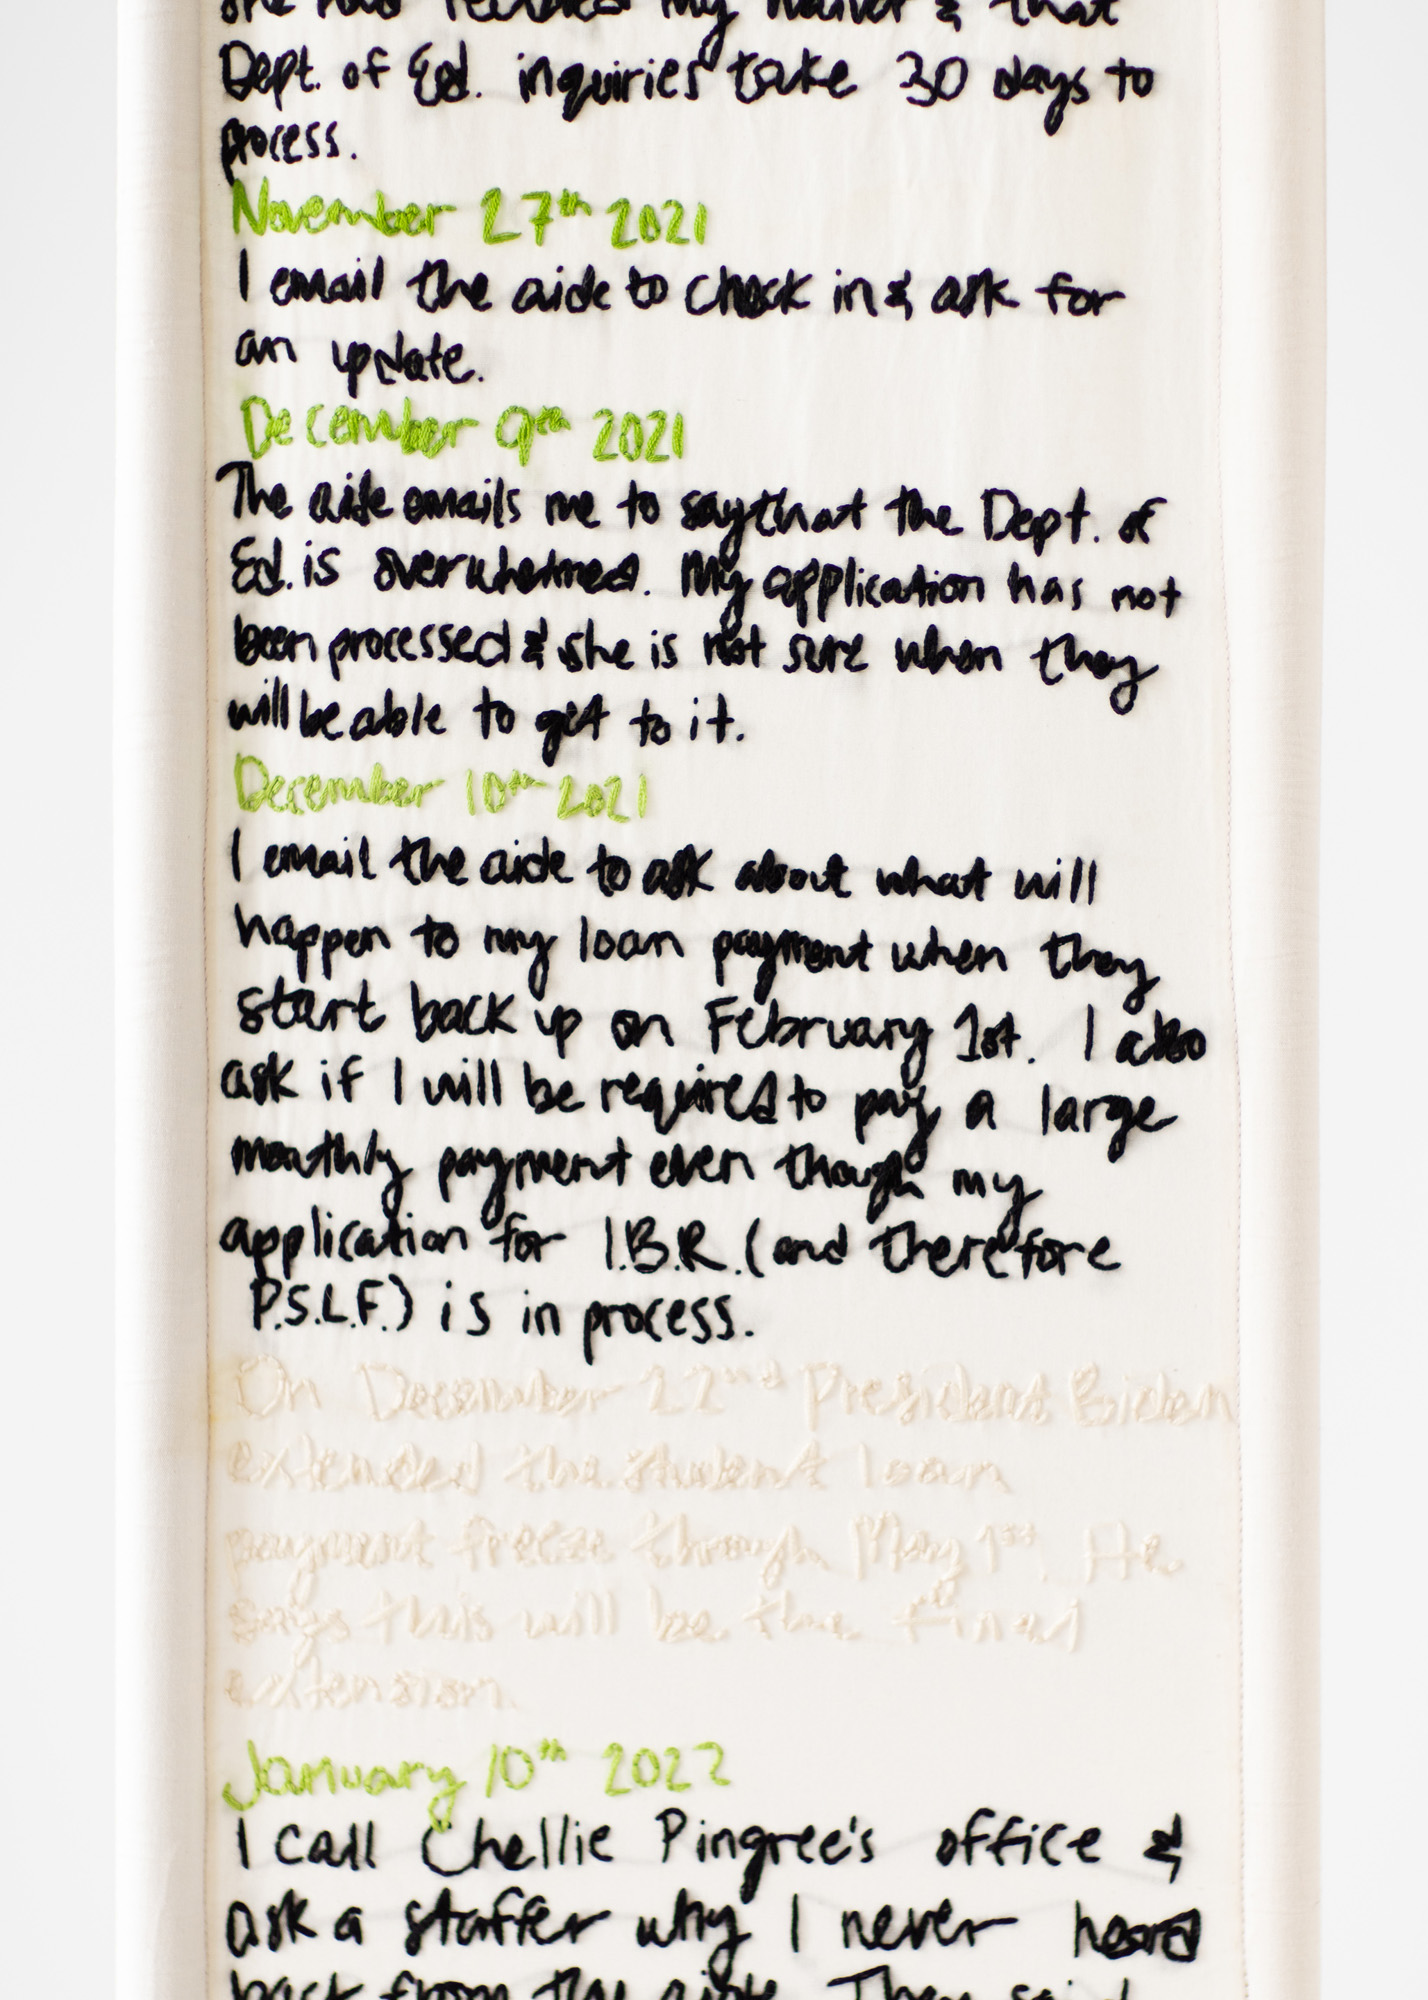 she has received my waiver & that
Dept. of Ed. inquiries take 30 days to
process.
November 27th 2021
I email the aide to check in & ask for
an update.
December 9th 2021
The aide emails me to say that the Dept. of
Ed. is overwhelmed. My application has not
been processed & she is not sure when they
will be able to get to it.
December 10th 2021
I email the aide to ask about what will
happen to my loan payment when they
start back up on February 1st. I also
ask if I will be required to pay a large
monthly payment even though my
application for I.B.R. (and therefore
P.S.L.F.) is in process.
On December 22nd President Biden
extended the student loan
payment freeze through May 1st. He
says this will be the final
extension.
January 10th 2022
I call Chellie Pingree's office &
ask a staffer why I never heard
back from the aide. They said